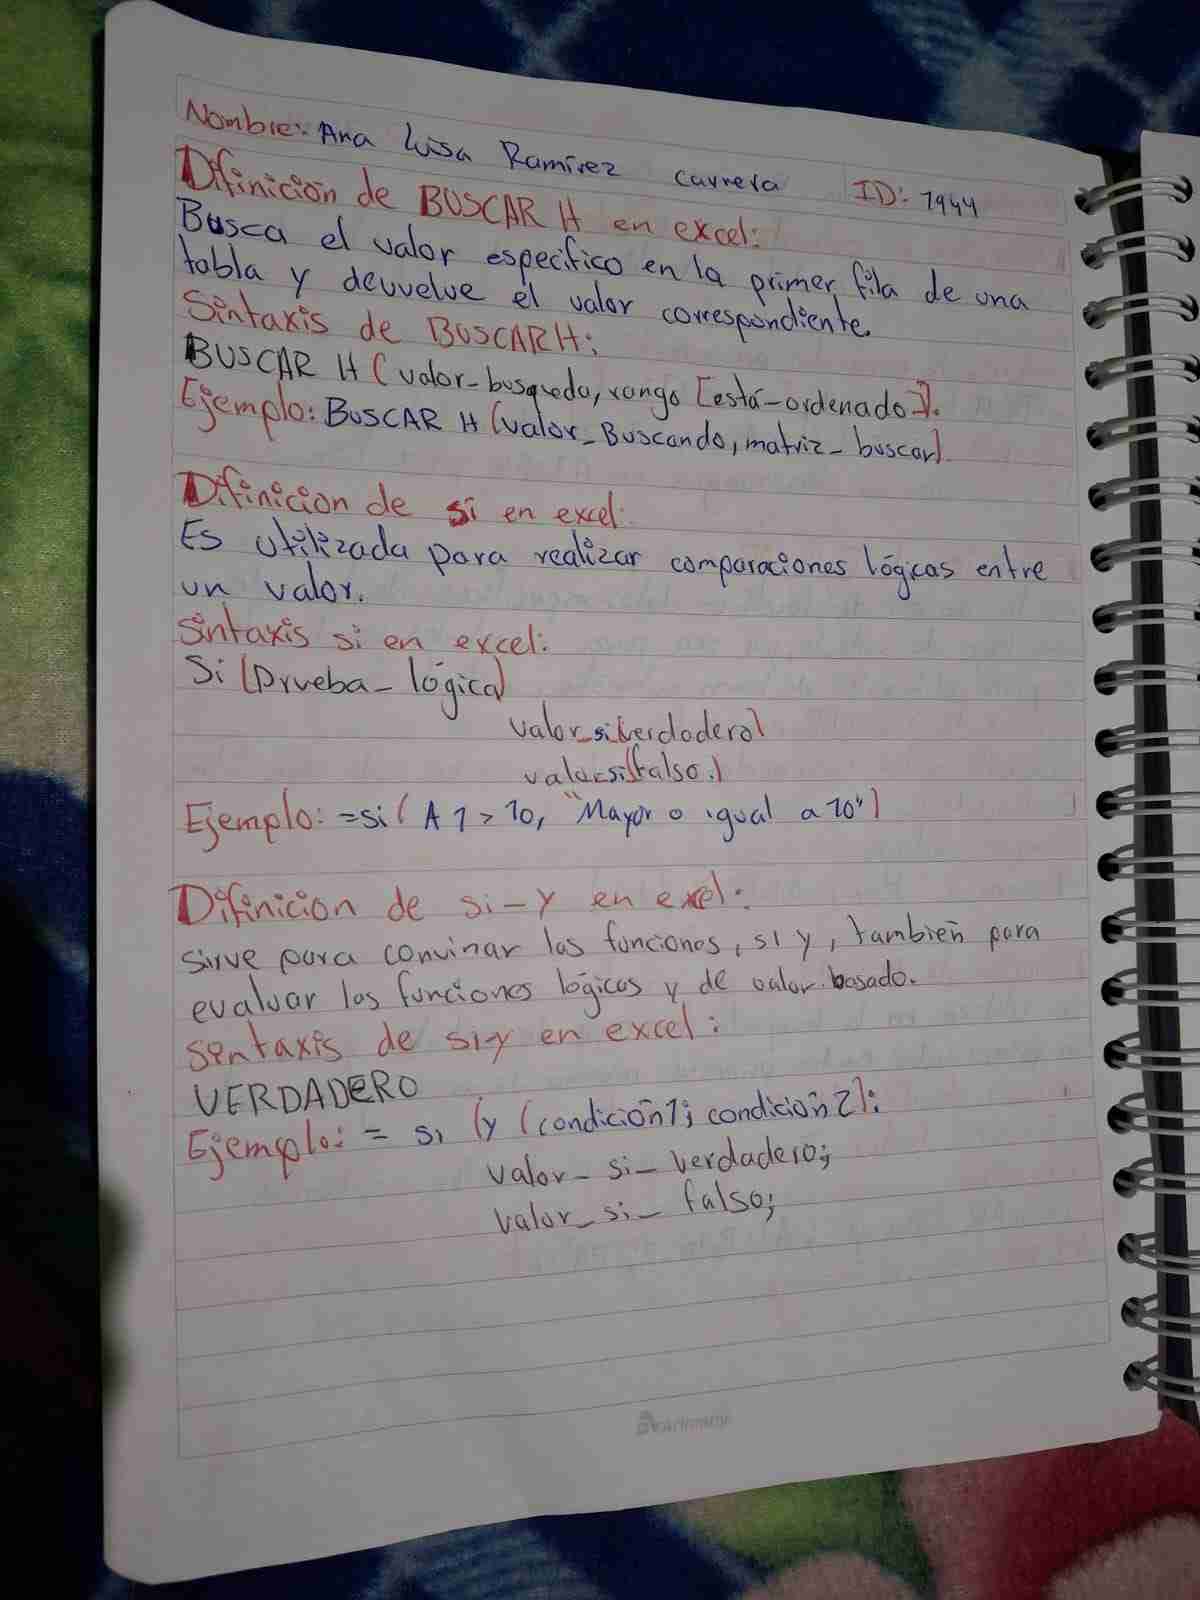 Nombre: Ana Luisa Ramirez Carrera ID: 1944
Difinición de BUSCAR H en excel:
Busca el valor especifico en la primer fila de una
tabla y devuelve el valor correspondiente.
Sintaxis de BUSCARH:
BUSCAR H (valor-busqueda, rango [está-ordenado-]).
Ejemplo: BUSCAR H (valor_Buscando, matriz_buscar)
Difinicion de si en excel:
Es utilizada para realizar comparaciones lógicas entre
un valor.
Sintaxis si en excel:
Si (Prueba_lógica)
valor_si(verdadero)
valor_si(falso.)
Ejemplo: =si( A1>10, "Mayor o igual a 10")
Difinicion de si-y en excel:
sirve para convinar las funciones, si y, también para
evaluar las funciones lógicas y de valor basado.
sintaxis de si-y en excel:
VERDADERO
Ejemplo: = si (y (condición1; condición2);
valor_si_verdadero;
valor_si_falso;